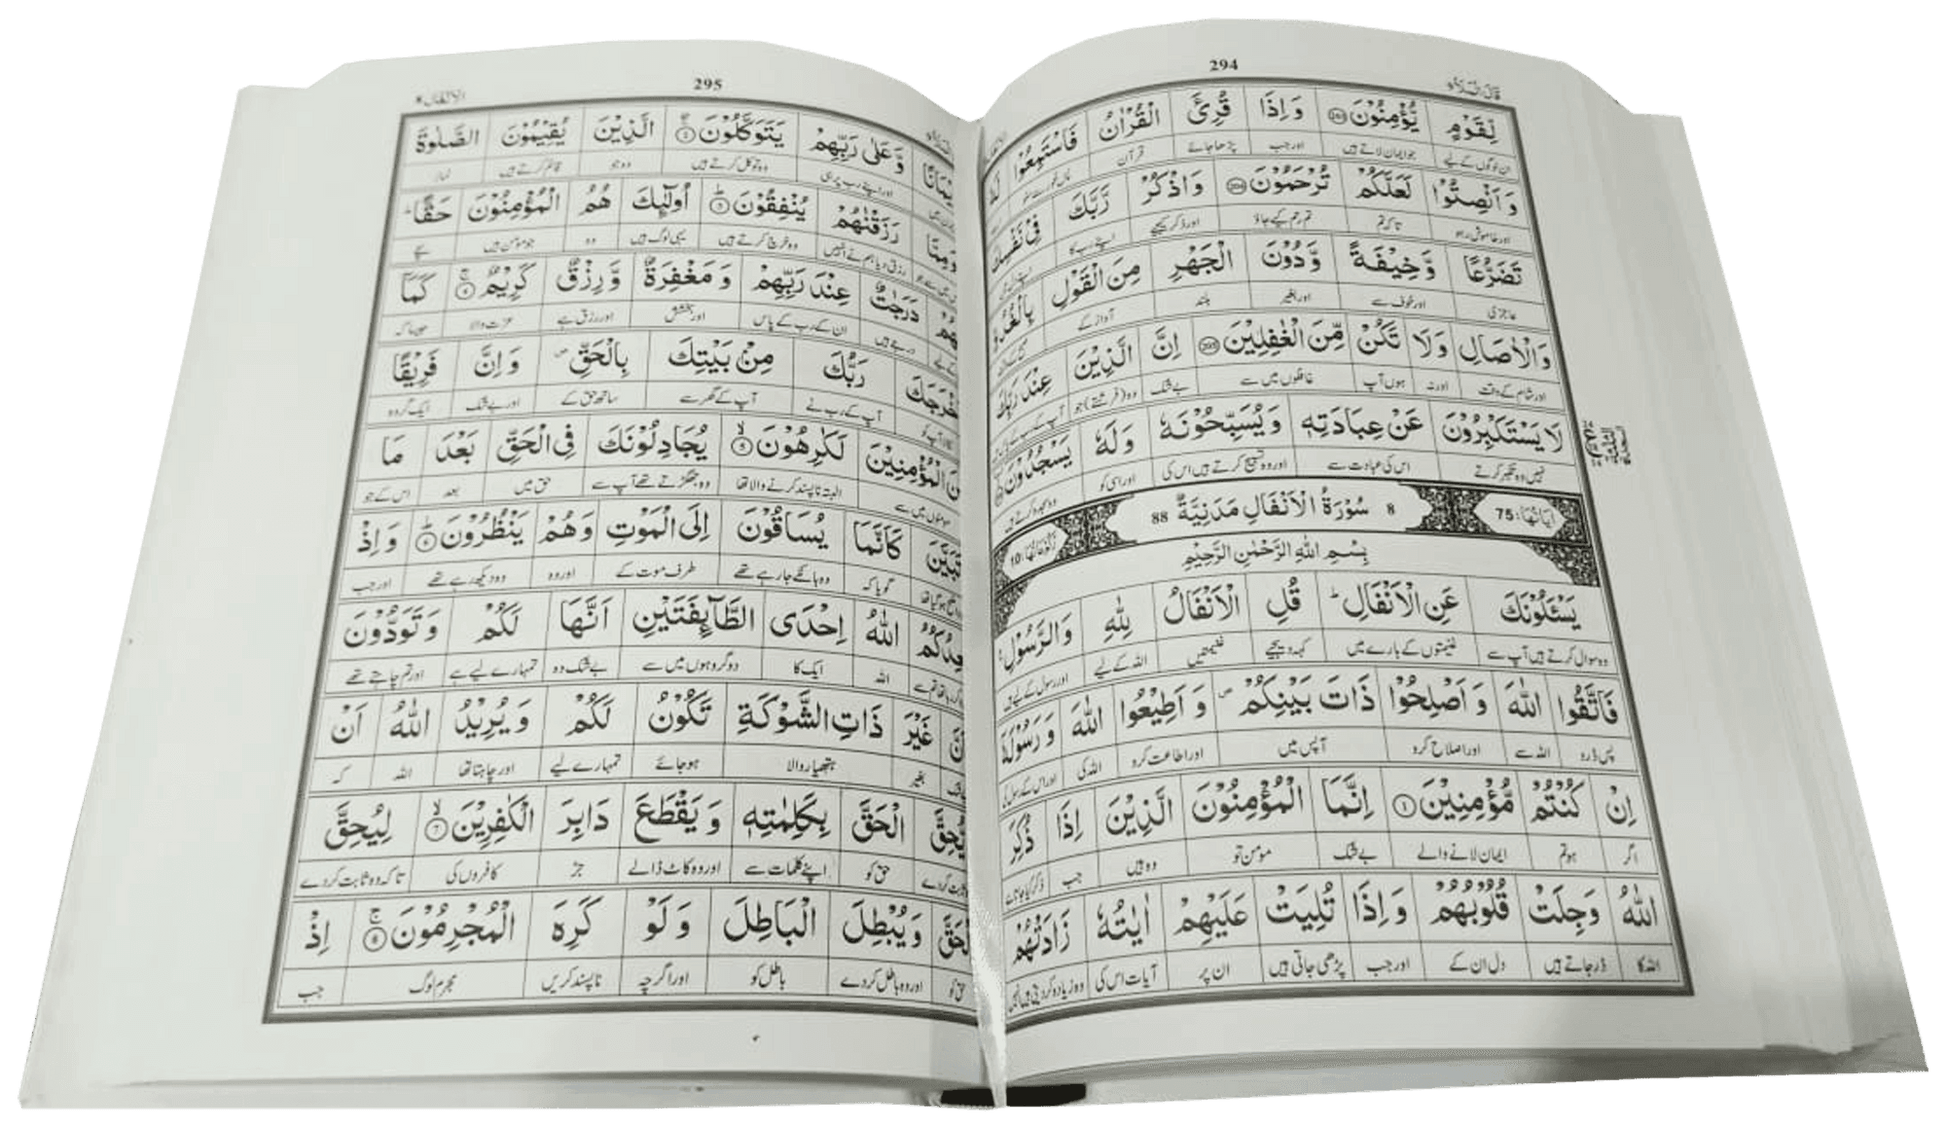 294
قَالَ الْمَلَاُ ٩
لِّقَوْمٍ يُّؤْمِنُوْنَ 203 وَ اِذَا قُرِئَ الْقُرْاٰنُ فَاسْتَمِعُوْا
ان لوگوں کے لیے جو ایمان لاتے ہیں اور جب پڑھا جائے قرآن
وَ اَنْصِتُوْا لَعَلَّكُمْ تُرْحَمُوْنَ 204 وَ اذْكُرْ رَّبَّكَ
اور خاموش رہو تاکہ تم تم رحم کیے جاؤ اور ذکر کیجیے اپنے رب کا
تَضَرُّعًا وَّ خِيْفَةً وَّ دُوْنَ الْجَهْرِ مِنَ الْقَوْلِ
عاجزی اور خوف سے اور بغیر بلند آواز کے
وَ الْاٰصَالِ وَ لَا تَكُنْ مِّنَ الْغٰفِلِيْنَ 205 اِنَّ الَّذِيْنَ عِنْدَ رَبِّكَ
اور شام کے وقت اور نہ ہوں آپ غافلوں میں سے بے شک وہ (فرشتے) جو
لَا يَسْتَكْبِرُوْنَ عَنْ عِبَادَتِهٖ وَ يُسَبِّحُوْنَهٗ وَ لَهٗ يَسْجُدُوْنَ
نہیں وہ تکبر کرتے اس کی عبادت سے اور وہ تسبیح کرتے ہیں اس کی اور اسی کو وہ سجدہ کرتے ہیں
اٰيَاتُهَا: 75 8 سُوْرَةُ الْاَنْفَالِ مَدَنِيَّةٌ 88 رُكُوْعَاتُهَا: 10
بِسْمِ اللّٰهِ الرَّحْمٰنِ الرَّحِيْمِ
يَسْـَٔلُوْنَكَ عَنِ الْاَنْفَالِ ؕ قُلِ الْاَنْفَالُ لِلّٰهِ وَ الرَّسُوْلِ ۚ
وہ سوال کرتے ہیں آپ سے غنیمتوں کے بارے میں کہہ دیجیے غنیمتیں اللہ کے لیے
فَاتَّقُوا اللّٰهَ وَ اَصْلِحُوْا ذَاتَ بَيْنِكُمْ ۪ وَ اَطِيْعُوا اللّٰهَ وَ رَسُوْلَهٗۤ
پس ڈرو اللہ سے اور اصلاح کرو آپس میں اور اطاعت کرو اللہ کی اور اس کے رسول کی
اِنْ كُنْتُمْ مُّؤْمِنِيْنَ 1 اِنَّمَا الْمُؤْمِنُوْنَ الَّذِيْنَ اِذَا ذُكِرَ
اگر ہو تم ایمان لانے والے بے شک مومن تو وہ ہیں جب
اللّٰهُ وَجِلَتْ قُلُوْبُهُمْ وَ اِذَا تُلِيَتْ عَلَيْهِمْ اٰيٰتُهٗ زَادَتْهُمْ
اللہ کا ڈر جاتے ہیں دل ان کے اور جب پڑھی جاتی ہیں ان پر آیات اس کی
295
الانفال ٨
وَّ عَلٰى رَبِّهِمْ يَتَوَكَّلُوْنَ 2 الَّذِيْنَ يُقِيْمُوْنَ الصَّلٰوةَ
اور اپنے رب پر ہی وہ توکل کرتے ہیں وہ جو قائم کرتے ہیں نماز
وَ مِمَّا رَزَقْنٰهُمْ يُنْفِقُوْنَ 3 اُولٰٓىِٕكَ هُمُ الْمُؤْمِنُوْنَ حَقًّا ؕ
رزق دیا ہم نے انہیں وہ خرچ کرتے ہیں یہی لوگ ہیں وہ جو مومن ہیں سچے
دَرَجٰتٌ عِنْدَ رَبِّهِمْ وَ مَغْفِرَةٌ وَّ رِزْقٌ كَرِيْمٌ 4 كَمَاۤ
درجے ہیں ان کے رب کے پاس اور بخشش اور رزق ہے عزت والا جیسا کہ
رَبُّكَ مِنْۢ بَيْتِكَ بِالْحَقِّ ۪ وَ اِنَّ فَرِيْقًا
آپ کے رب نے آپ کے گھر سے ساتھ حق کے اور بے شک ایک گروہ
الْمُؤْمِنِيْنَ لَكٰرِهُوْنَ 5 يُجَادِلُوْنَكَ فِي الْحَقِّ بَعْدَ مَا
مومنوں میں سے البتہ ناپسند کرنے والا تھا وہ جھگڑتے تھے آپ سے حق میں بعد اس کے جو
كَاَنَّمَا يُسَاقُوْنَ اِلَى الْمَوْتِ وَ هُمْ يَنْظُرُوْنَ 6 وَ اِذْ
گویا کہ وہ ہانکے جا رہے تھے طرف موت کے اور وہ وہ دیکھ رہے تھے اور جب
اللّٰهُ اِحْدَى الطَّآىِٕفَتَيْنِ اَنَّهَا لَكُمْ وَ تَوَدُّوْنَ
اللہ ایک کا دو گروہوں میں سے بے شک وہ تمہارے لیے ہے اور تم چاہتے تھے
غَيْرَ ذَاتِ الشَّوْكَةِ تَكُوْنُ لَكُمْ وَ يُرِيْدُ اللّٰهُ اَنْ
بغیر ہتھیار والا ہو جائے تمہارے لیے اور چاہتا تھا اللہ کہ
الْحَقَّ بِكَلِمٰتِهٖ وَ يَقْطَعَ دَابِرَ الْكٰفِرِيْنَ 7 لِيُحِقَّ
حق کو اپنے کلمات سے اور وہ کاٹ ڈالے جڑ کافروں کی تاکہ وہ ثابت کر دے
وَ يُبْطِلَ الْبَاطِلَ وَ لَوْ كَرِهَ الْمُجْرِمُوْنَ 8 اِذْ
حق کو اور وہ باطل کر دے باطل کو اور اگرچہ ناپسند کریں مجرم لوگ جب